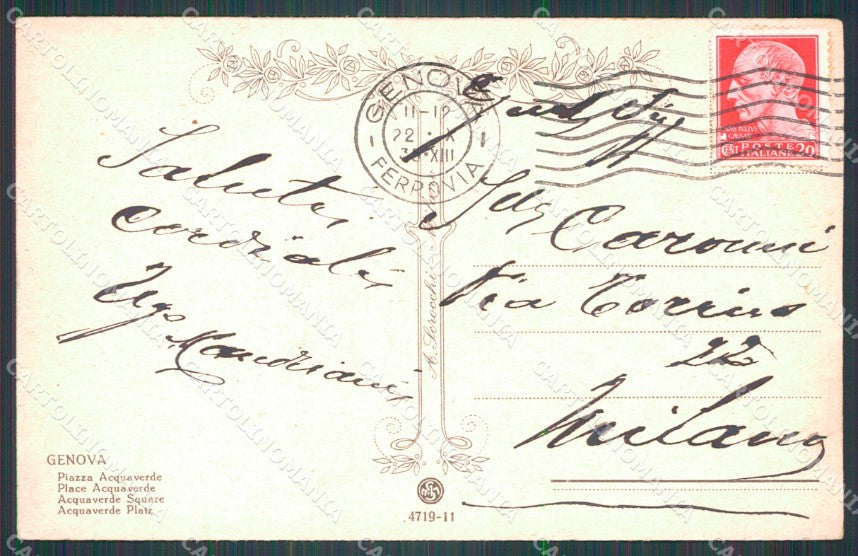 Saluti
Cordiali
Ugo
GENOVA
Piazza Acquaverde
Place Acquaverde
Acquaverde Square
Acquaverde Platz
GENOVA
11-12
22
XIII
FERROVIA
A. Scrocchi
4719-11
IVLIVS
CAESAR
CENT. POSTE 20
ITALIANE
Via Torino
22
Milano
CARTOLINOMANIA